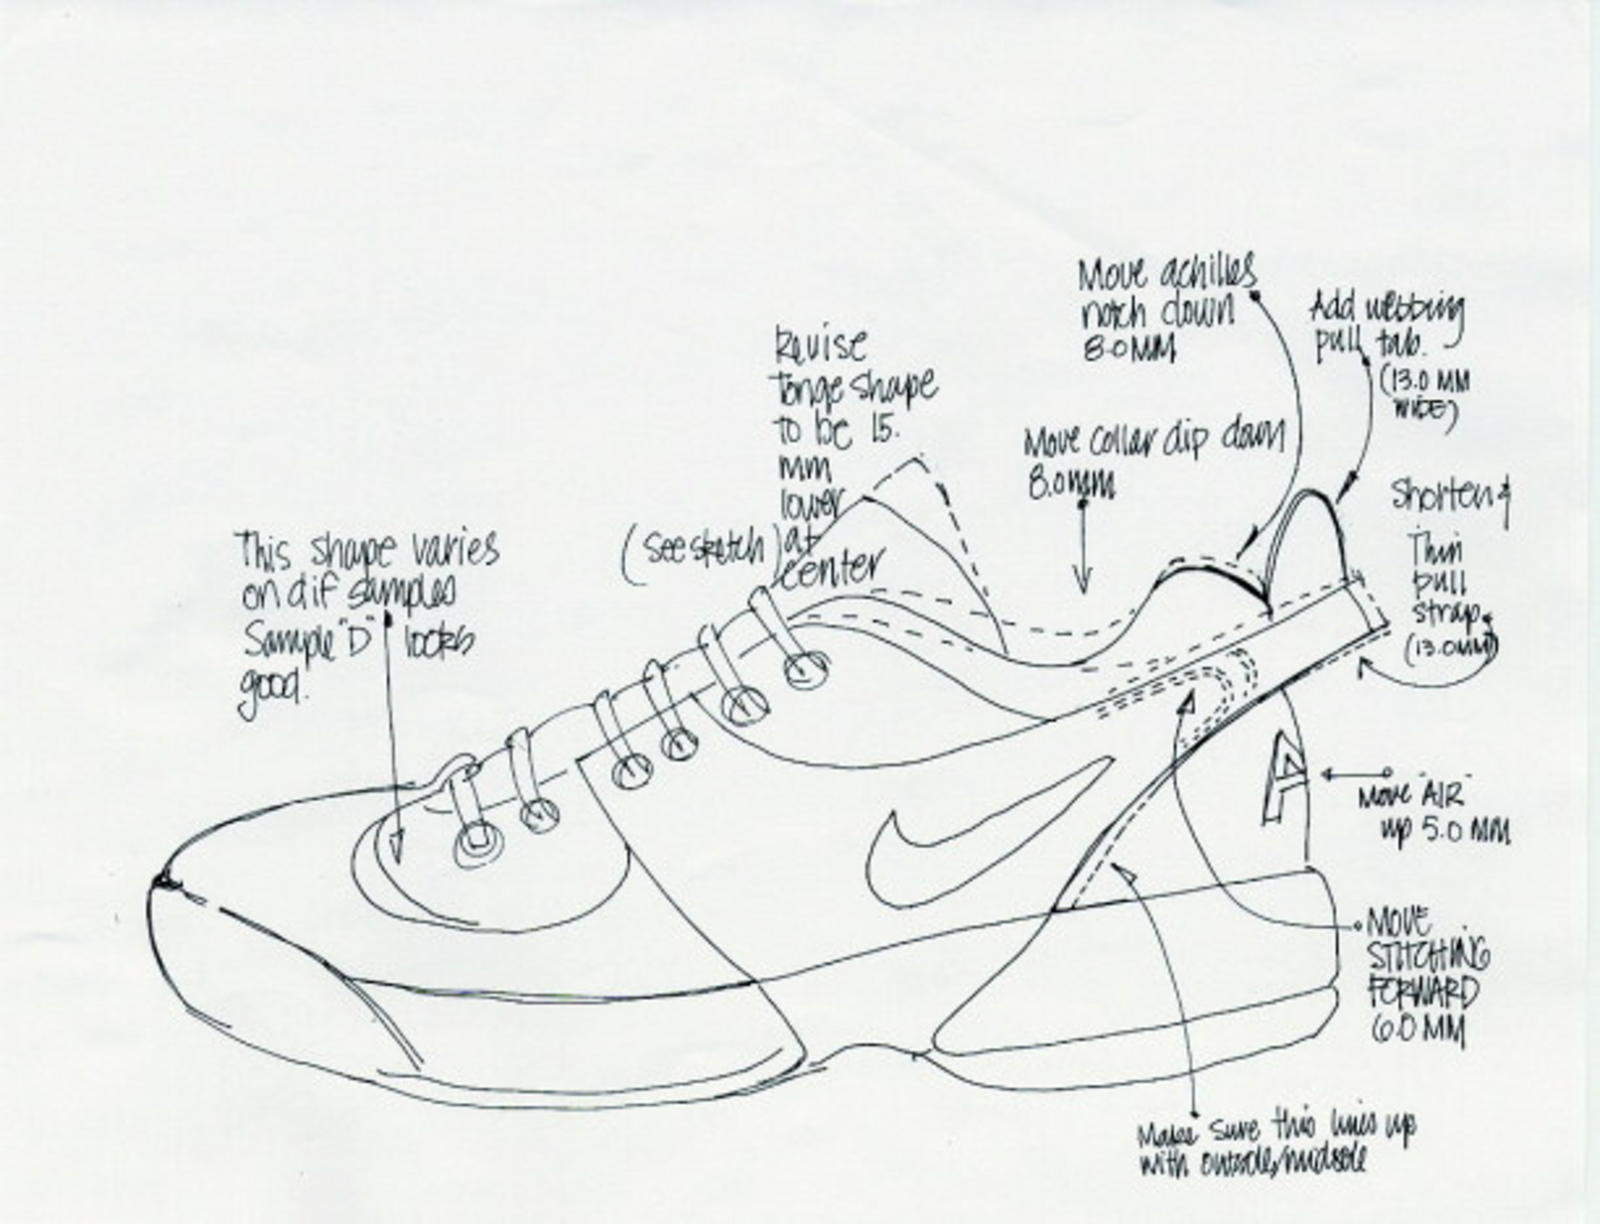 Move achilles
notch down
8.0MM
Add webbing
pull tab.
(13.0 MM
WIDE)
Revise
tonge shape
to be 15.
mm
lower
(see sketch) at
center
Move collar dip down
8.0mm
Shorten &
Thin
pull
strap
(13.0mm)
This shape varies
on dif samples
Sample "D" looks
good.
A
Move "AIR"
up 5.0 MM
MOVE
STITCHING
FORWARD
6.0 MM
Make sure this lines up
with outsole/midsole